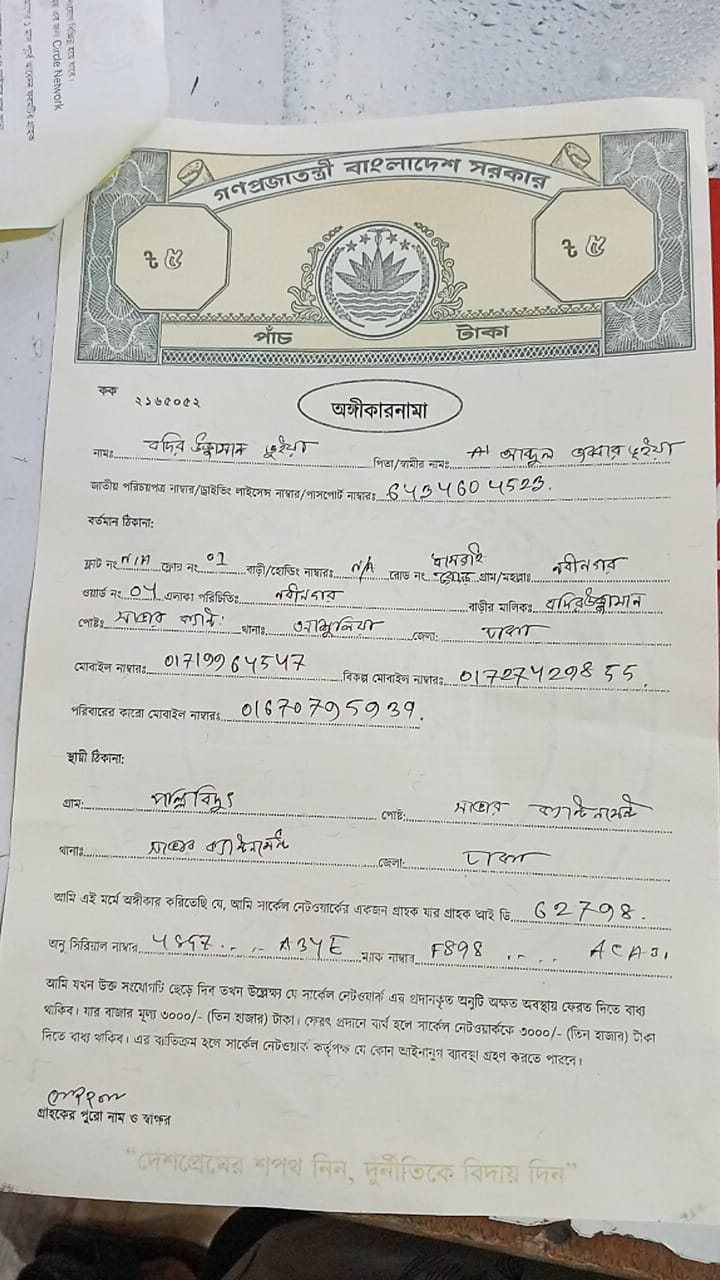 Circle Network
গণপ্রজাতন্ত্রী বাংলাদেশ সরকার
৳ ৫ ৳ ৫
পাঁচ টাকা
কক ২১৬৫০৫২
অঙ্গীকারনামা
নামঃ ভূইয়া পিতা/স্বামীর নামঃ আব্দুল ভূইয়া
জাতীয় পরিচয়পত্র নাম্বার/ড্রাইভিং লাইসেন্স নাম্বার/পাসপোর্ট নাম্বারঃ 6434604523.
বর্তমান ঠিকানা:
ফ্লাট নং N/A ফ্লোর নং 01 বাড়ী/হোল্ডিং নাম্বারঃ N/A রোড নং ধামরাই গ্রাম/মহল্লাঃ নবীনগর
ওয়ার্ড নং 04 এলাকা পরিচিতিঃ নবীনগর বাড়ীর মালিকঃ
পোষ্টঃ সাভার ক্যান্ট: থানাঃ আশুলিয়া জেলা: ঢাকা
মোবাইল নাম্বারঃ 01719964547 বিকল্প মোবাইল নাম্বারঃ 01727429855.
পরিবারের কারো মোবাইল নাম্বারঃ 01670795939.
স্থায়ী ঠিকানা:
গ্রাম: পল্লিবিদ্যুৎ পোষ্ট: সাভার ক্যান্টনমেন্ট
থানাঃ সাভার ক্যান্টনমেন্ট জেলা: ঢাকা
আমি এই মর্মে অঙ্গীকার করিতেছি যে, আমি সার্কেল নেটওয়ার্কের একজন গ্রাহক যার গ্রাহক আই ডি 62798.
অনু সিরিয়াল নাম্বার A34E ম্যাক নাম্বার F898 ....
আমি যখন উক্ত সংযোগটি ছেড়ে দিব তখন উল্লেক্ষ্য যে সার্কেল নেটওয়ার্ক এর প্রদানকৃত অনুটি অক্ষত অবস্থায় ফেরত দিতে বাধ্য
থাকিব। যার বাজার মূল্য ৩০০০/- (তিন হাজার) টাকা। ফেরৎ প্রদানে ব্যর্থ হলে সার্কেল নেটওয়ার্ককে ৩০০০/- (তিন হাজার) টাকা
দিতে বাধ্য থাকিব। এর ব্যতিক্রম হলে সার্কেল নেটওয়ার্ক কর্তৃপক্ষ যে কোন আইনানুগ ব্যাবস্থা গ্রহণ করতে পারবে।
গ্রাহকের পুরো নাম ও স্বাক্ষর
“দেশপ্রেমের শপথ নিন, দুর্নীতিকে বিদায় দিন”